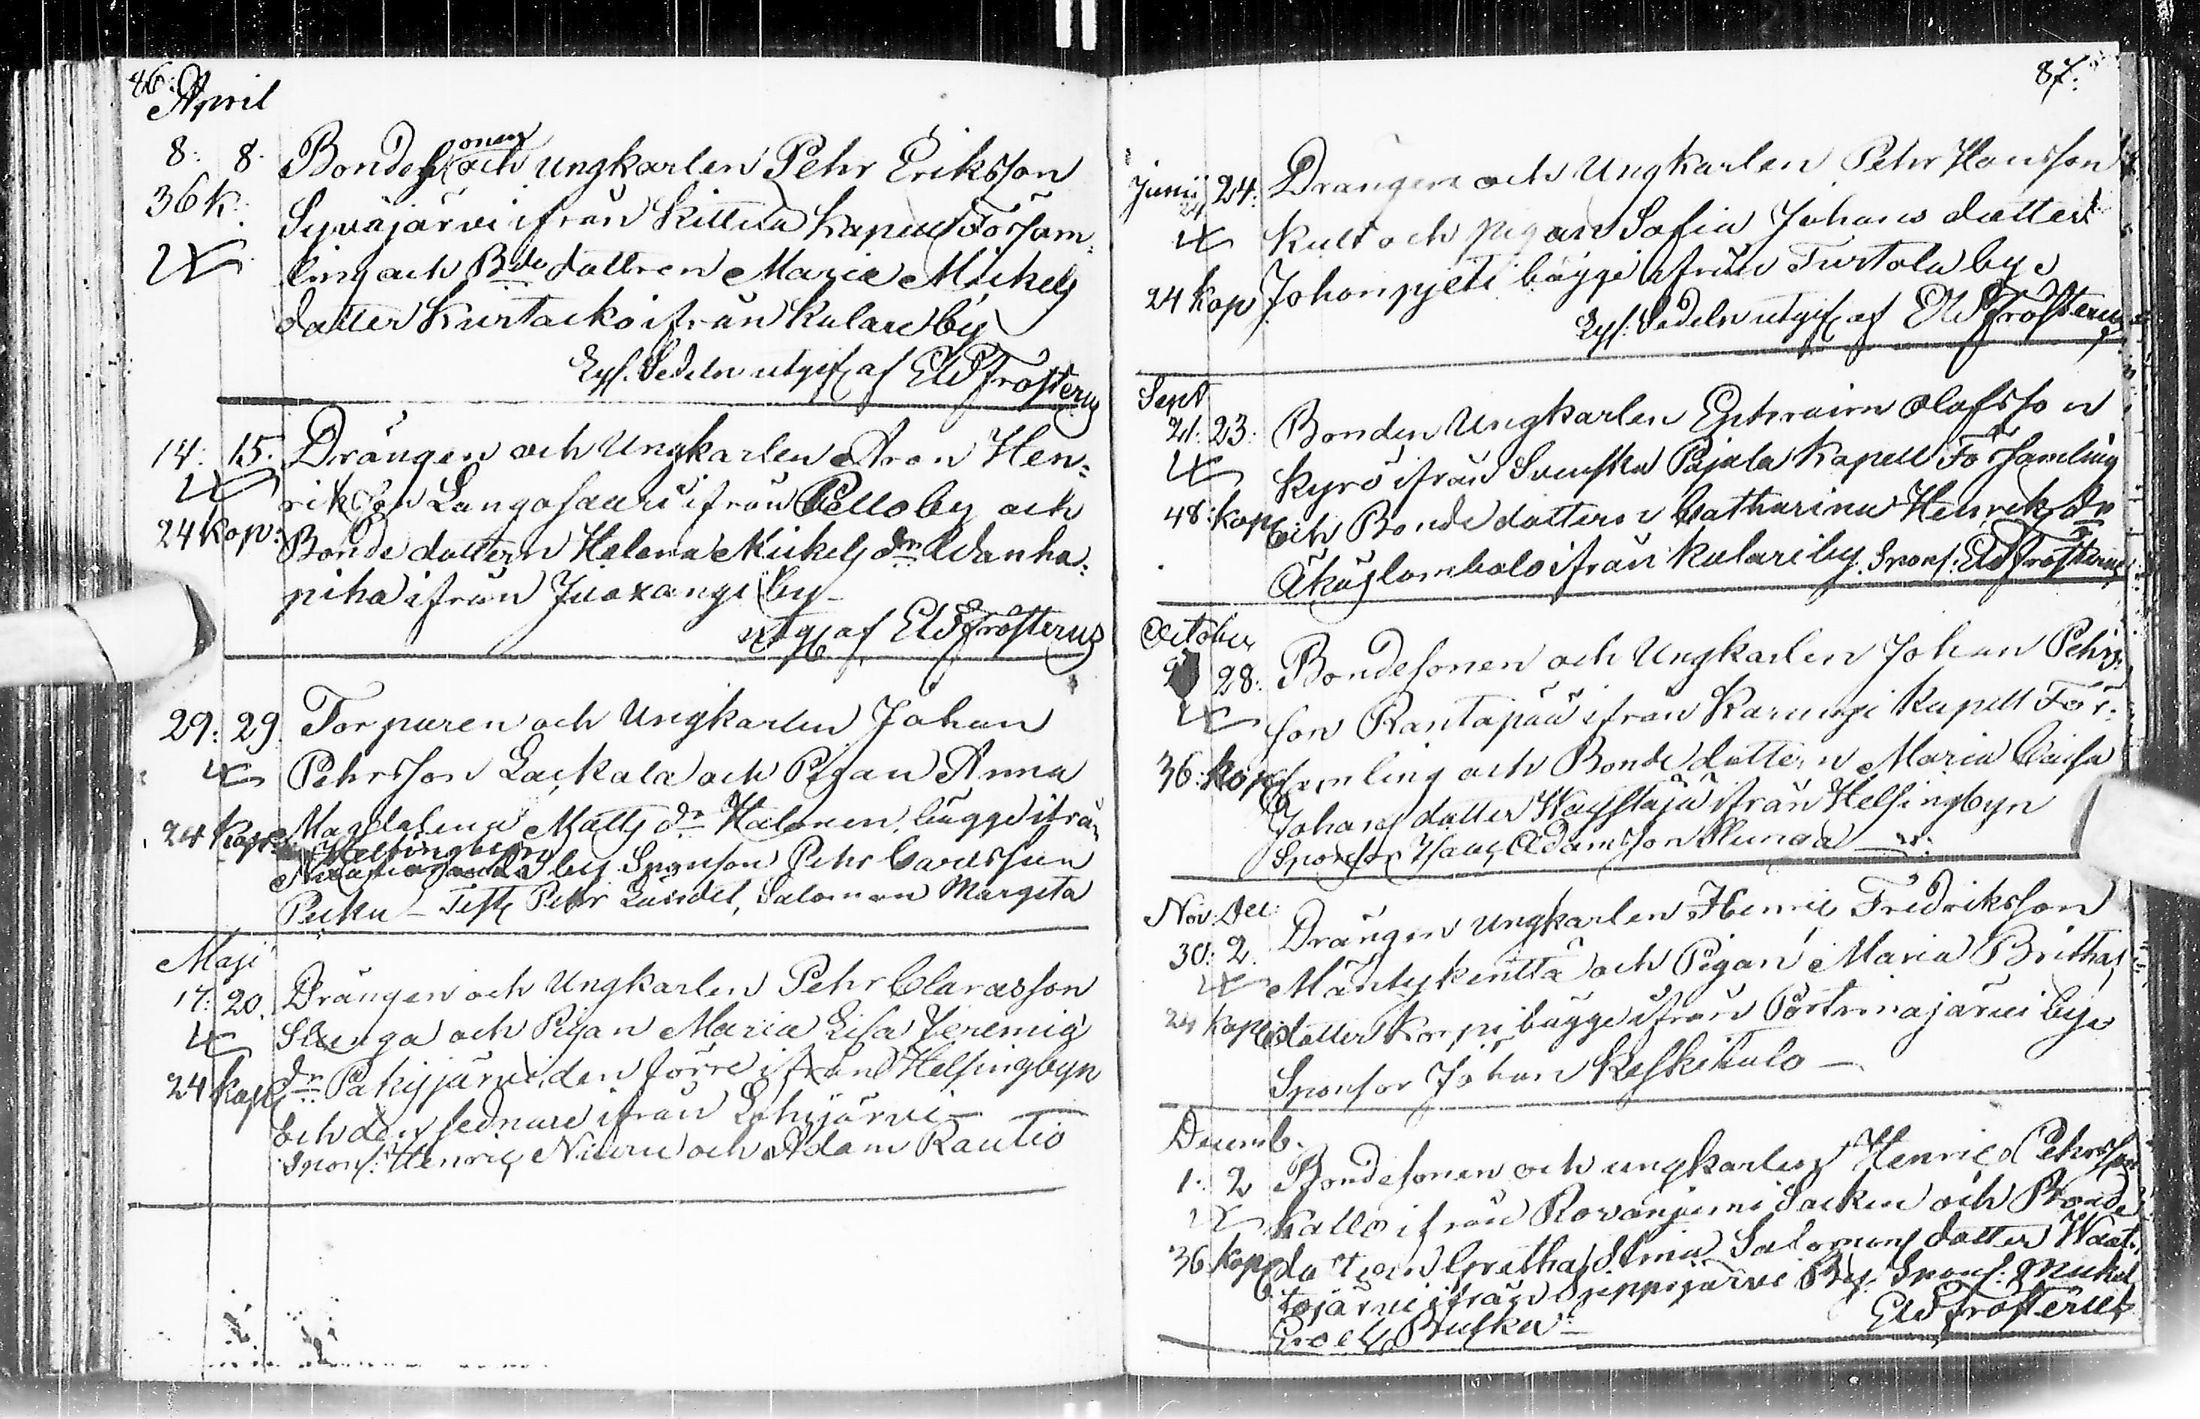 86. April
8: 8. Bondesonen och Ungkarlen Pehr Eriksson
36 k. Syväjärvi ifrån Kittilä Kapell Försam-
ling och Bde dottren Maria Mickels
dotter Kurtacko ifrån Kolare by
Lys. Sedeln utgif. af Eld Frosterus
14: 15. Drängen och Ungkarlen Aron Hen-
rikson Langosaari ifrån Pello by och
24 kop: Bonde dottern Helena Mickels dr Wanha-
piha ifrån Juoxangi by
utgif af Eld Frosterus
29: 29. Torparen och Ungkarlen Johan
Pehrsson Lackala och Pigan Anna
24 kop: Magdalena Matts dr Halonen bägge ifrån
Helsingbyn
by Sponson Pehr Claesson
Pecku - Test Pehr Lundel, Salomon Margeta
Maji
17: 20. Drängen och Ungkarlen Pehr Clarasson
Slunga och Pigan Maria Lisa Jeremiæ
24 kop dr Pakisjärvi, den förre ifrån Helsingbyn
och den sednare ifrån Lohijärvi -
Spons: Henric Niuru och Adam Rautio
87.
Junii 24: Drängen och Ungkarlen Pehr Hansson
21
Kult och pigan Sofia Johans dotter
24 kop Johanpjeti bägge ifrån Turtola by
Lys: Sedeln utgif af Eld Frosterus
Sept
21: 23: Bonden Ungkarlen Ephraim Olofsson
Kyrö ifrån Svenska Pajala Kapell Församling
48: kop och Bonde dottern Catharina Henriks dr
Äkäslombolo ifrån Kolari by. Spons: Eld Frosterus
October
28: Bondesonen och Ungkarlen Johan Pehrs-
son Rantapää ifrån Karungi Kapell För-
36: kop samling och Bonde dottern Maria Caisa
Johans dotter ifrån Helsingbyn
Sponsor Isac Adamsson Slunga
Nov: Dec:
30: 2. Drängen Ungkarlen Henric Fredriksson
Mäntykenttä och Pigan Maria Britha
24 kop dotter Korpi bägge ifrån Portimojärvi by
Sponsor Johan Keskitalo -
Decemb.
1: 2 Bondesonen och ungkarlen Henric Pehrsson
Kallo ifrån Rovaniemi Socken och Bonde
36 kop dottern Gretha Stina Salomons dotter Waat-
tojärvi ifrån Sieppijärvi By. Spons: Mickel
Eld Frosterus